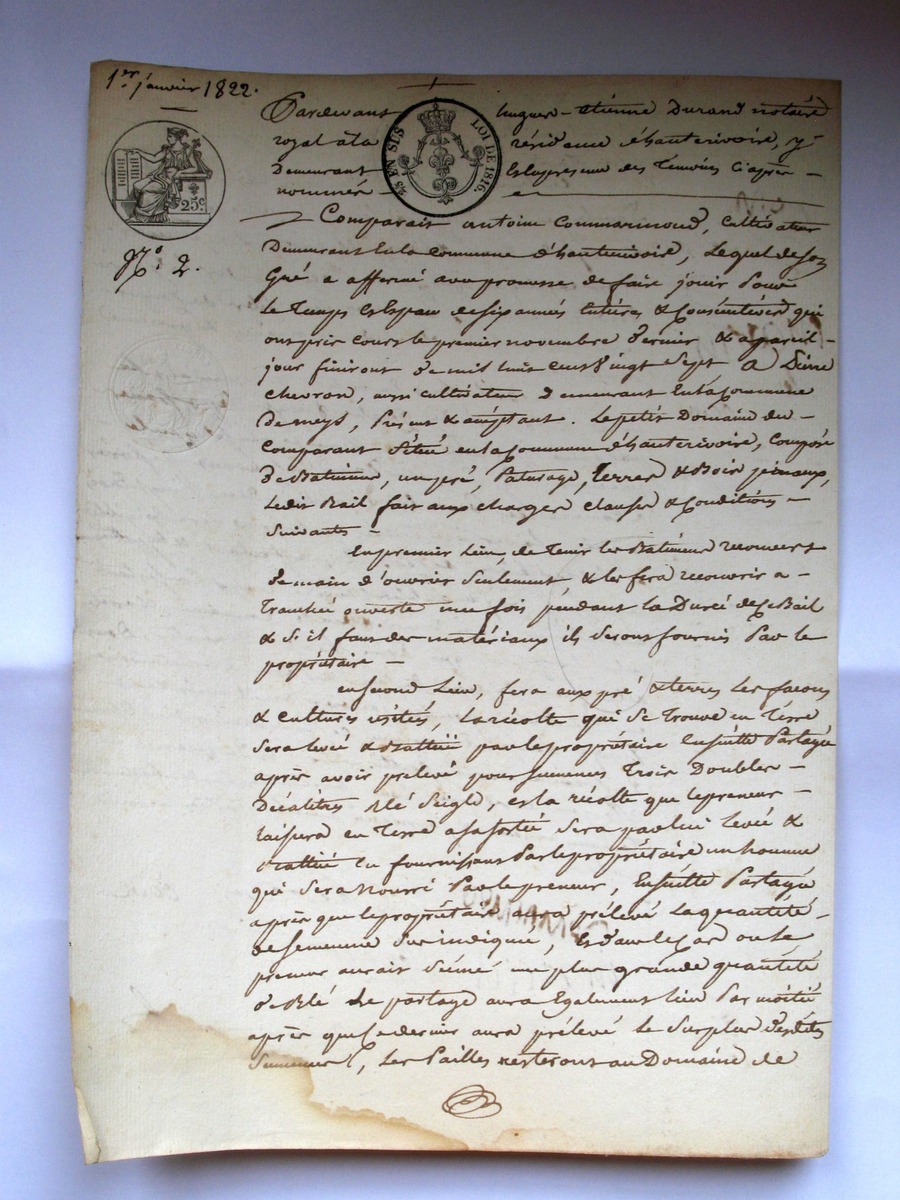 1er janvier 1822.
Pardevant hugues-étienne Durand notaire
royal à la résidence d'hauterivoire, y
Demeurant Et en presence des Temoins Ci après
nommés
25 EN SUS
LOI DE 1816.
25c
N.o 2.
Comparait antoine Commarmond, Cultivateur
Demeurant En la commune d'hauterivoire, Lequel de son
Gré a affermé avec promesse de faire jouir Pour
Le Temps Et Espace de six années Entières & Consécutives qui
ont pris cours le premier novembre dernier & a pareil
jour finiront de mil huit cent vingt Sept, a
chevron, aussi Cultivateur Demeurant En la Commune
de meys, Présent & acceptant. Le petit Domaine du
Comparant Situé en la Commune d'hauterivoire, Composé
de Batimens, un pré, Paturage, Terres & Bois
Ledit Bail fait aux charges clauses & Conditions
Suivantes
En premier Lieu, de Tenir les Batimens recouverts
de main d'ouvrier Seulement, & les fera recouvrir a
Tranchée ouverte une fois pendant la Durée de ce Bail
& S'il faut des matériaux ils Seront fournis Par le
propriétaire
en second Lieu, fera aux pré & terres les facons
& cultures usitées, La récolte qui Se Trouve en Terre
Sera levée & Battue par le propriétaire Ensuitte Partagée
après avoir prelevé pour semences Trois Doubles
Décalitres Blé Seigle, et la récolte que le preneur
laissera en Terre a sa sortie Sera par lui levée &
Battue En fournissant Par le propriétaire un homme
qui Sera Nourri Par le preneur, Ensuitte Partagée
après que le propriétaire aura prélevé La quantité
de Semence Sus indiquée, Et dans le Cas ou le
preneur aurait Semé une plus grande quantité
de Blé Le partage aura Egalement lieu Par moitié
après que Ce dernier aura prélevé Le Surplus desdites
Semences, Les Pailles resteront au Domaine de